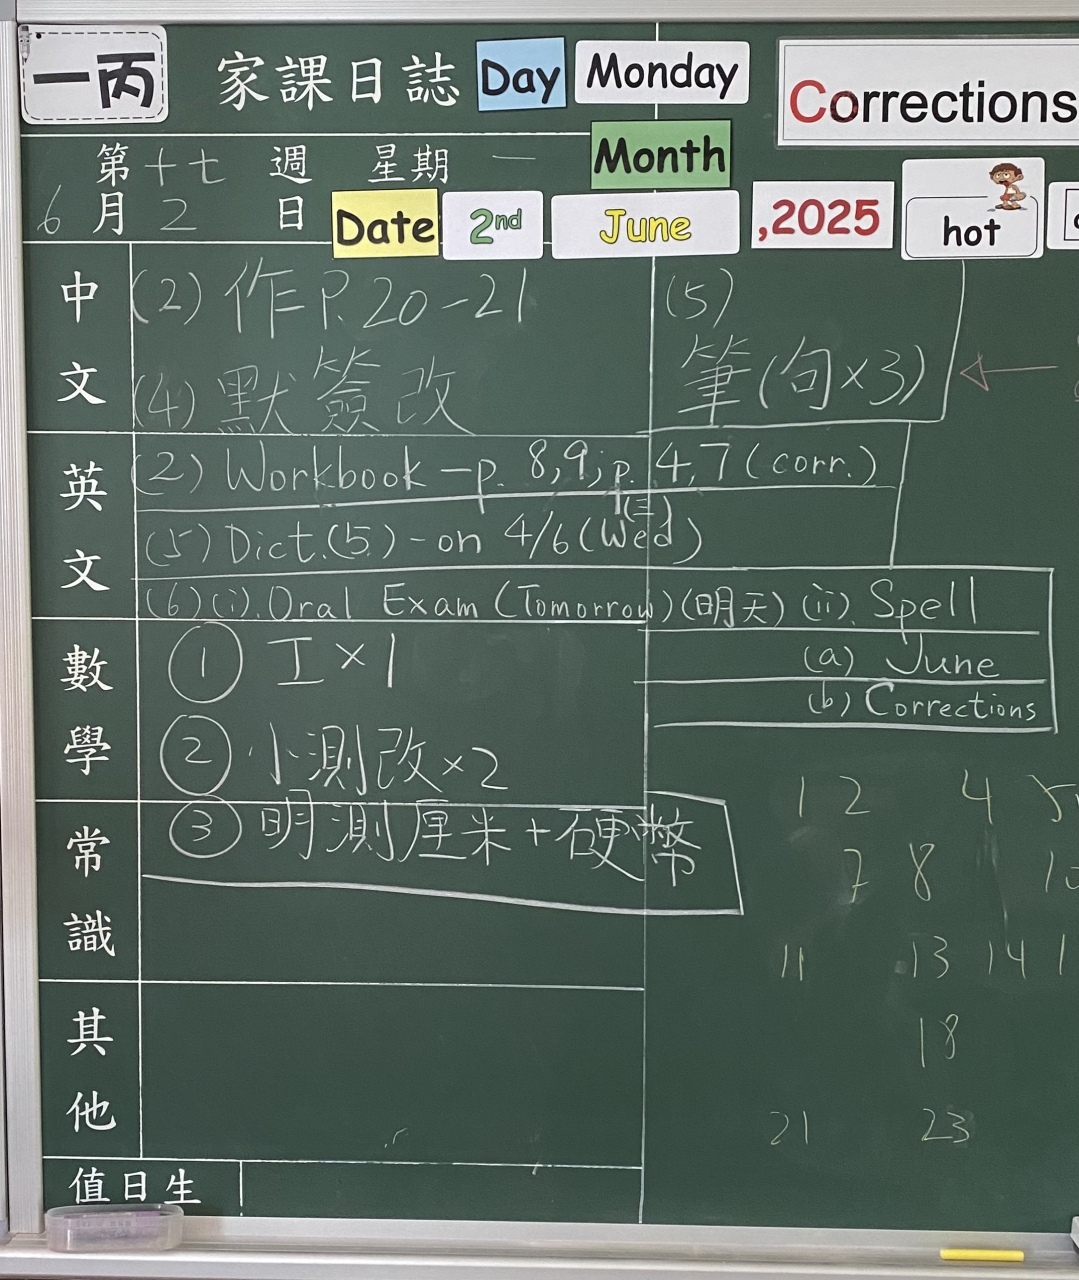 一丙 家課日誌 Day Monday Corrections
第十七週 星期一 Month
6月2日 Date 2nd June ,2025 hot
中文 (2) 作P.20-21 (5)
(4) 默簽改 筆(句×3)
英文 (2) Workbook – p. 8,9; p. 4,7 (corr.)
(三)
(5) Dict.(5) - on 4/6 (Wed)
(6) (i). Oral Exam (Tomorrow) (明天) (ii). Spell
(a) June
(b) Corrections
數學 ① 工×1
② 小測改×2
常識 ③ 明測厘米+硬幣
其他
值日生
1 2 4
7 8
11 13 14
18
21 23